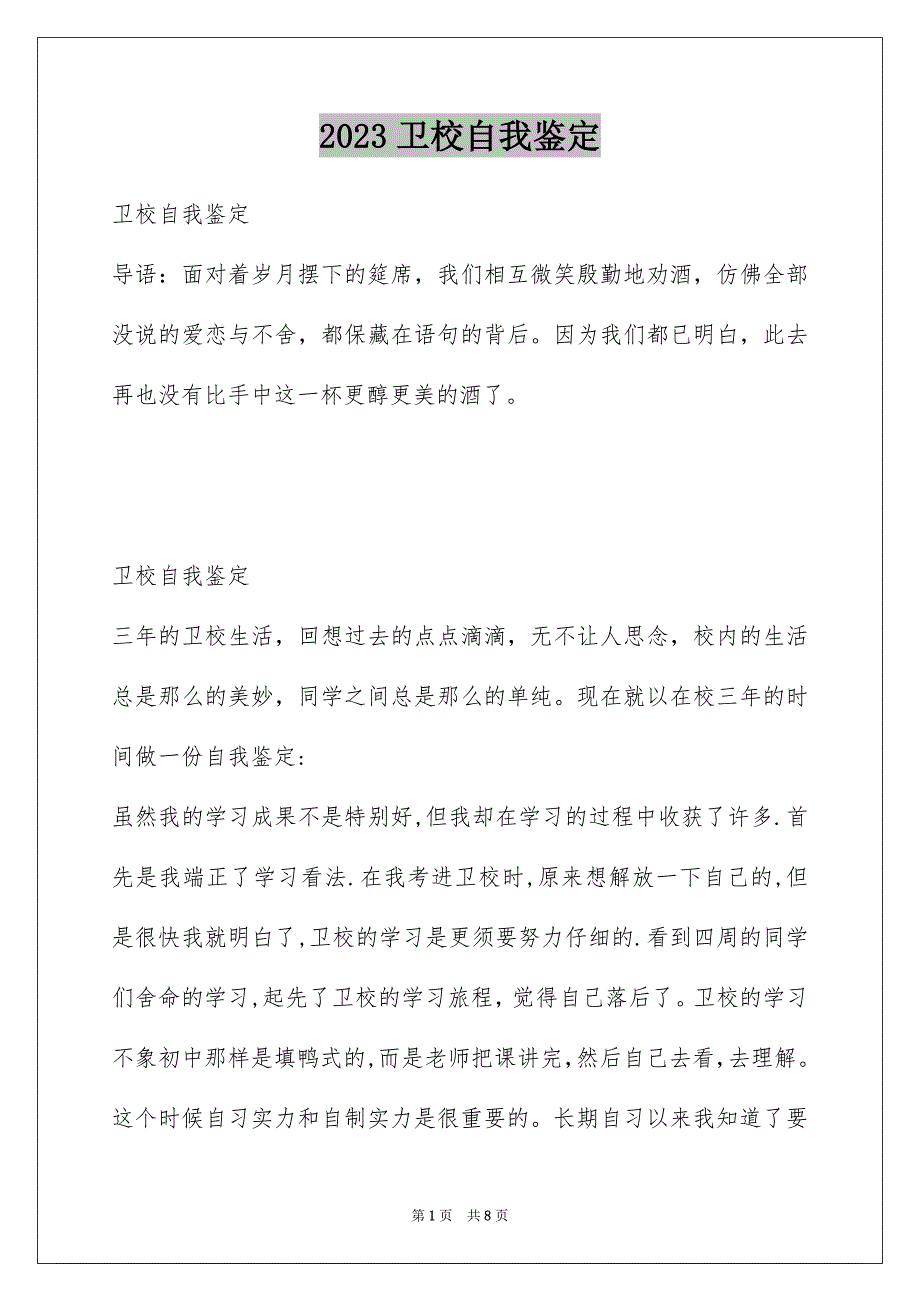 2023卫校自我鉴定
卫校自我鉴定
导语：面对着岁月摆下的筵席，我们相互微笑殷勤地劝酒，仿佛全部
没说的爱恋与不舍，都保藏在语句的背后。因为我们都已明白，此去
再也没有比手中这一杯更醇更美的酒了。
卫校自我鉴定
三年的卫校生活，回想过去的点点滴滴，无不让人思念，校内的生活
总是那么的美妙，同学之间总是那么的单纯。现在就以在校三年的时
间做一份自我鉴定:
虽然我的学习成果不是特别好,但我却在学习的过程中收获了许多.首
先是我端正了学习看法.在我考进卫校时,原来想解放一下自己的,但
是很快我就明白了,卫校的学习是更须要努力仔细的.看到四周的同学
们舍命的学习,起先了卫校的学习旅程，觉得自己落后了。卫校的学习
不象初中那样是填鸭式的,而是老师把课讲完,然后自己去看,去理解。
这个时候自习实力和自制实力是很重要的。长期自习以来我知道了要
第1页 共8页